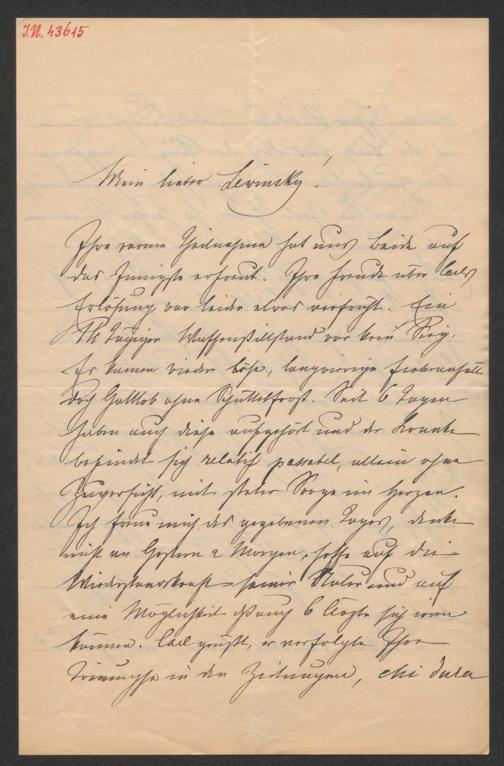 I.N. 43615
Mein lieber Lewinsky!
Ihre warme Theilnahme hat uns Beide auf
das Innigste erfreut. Ihre Freude über Carls
Erlösung war leider etwas verfrüht. Ein
14 tägiger Waffenstillstand war kein Sieg.
Es kamen wieder böse, langwierige Fieberanfälle
doch Gottlob ohne Schüttelfrost. Seit 6 Tagen
haben auch diese aufgehört und der Kranke
befindet sich relatif passabel, allein ohne
Zuversicht, mit steter Sorge im Herzen.
Ich freue mich des gegebenen Tages, denke
nicht an Gestern & Morgen, hoffe auf die
Wiederstandskraft seiner Natur und auf
eine Möglichkeit daß auch 6 Ärzte sich irren
können. Carl grüßt, er verfolgte Ihre
Triumphe in den Zeitungen, chi dura